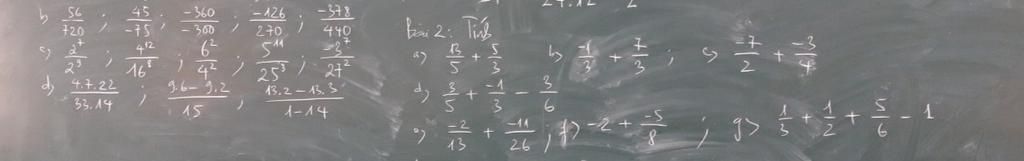 b) 56/720 ; 45/-75 ; -360/-300 ; -126/270 ; -378/440
c) 2^7/2^9 ; 4^12/16^8 ; 6^2/4^2 ; 5^11/25^5 ; -3^7/27^2
d) 4.7.22/33.14 ; 9.6-9.2/15 ; 13.2-13.3/1-14
Bài 2: Tính
a) 13/5 + 5/3 b) -1/3 + 7/3 ; c) -7/2 + -3/4
d) 3/5 + -1/3 - 3/6
e) -2/13 + -11/26 ; f) -2 + -5/8 ; g) 1/3 + 1/2 + 5/6 - 1